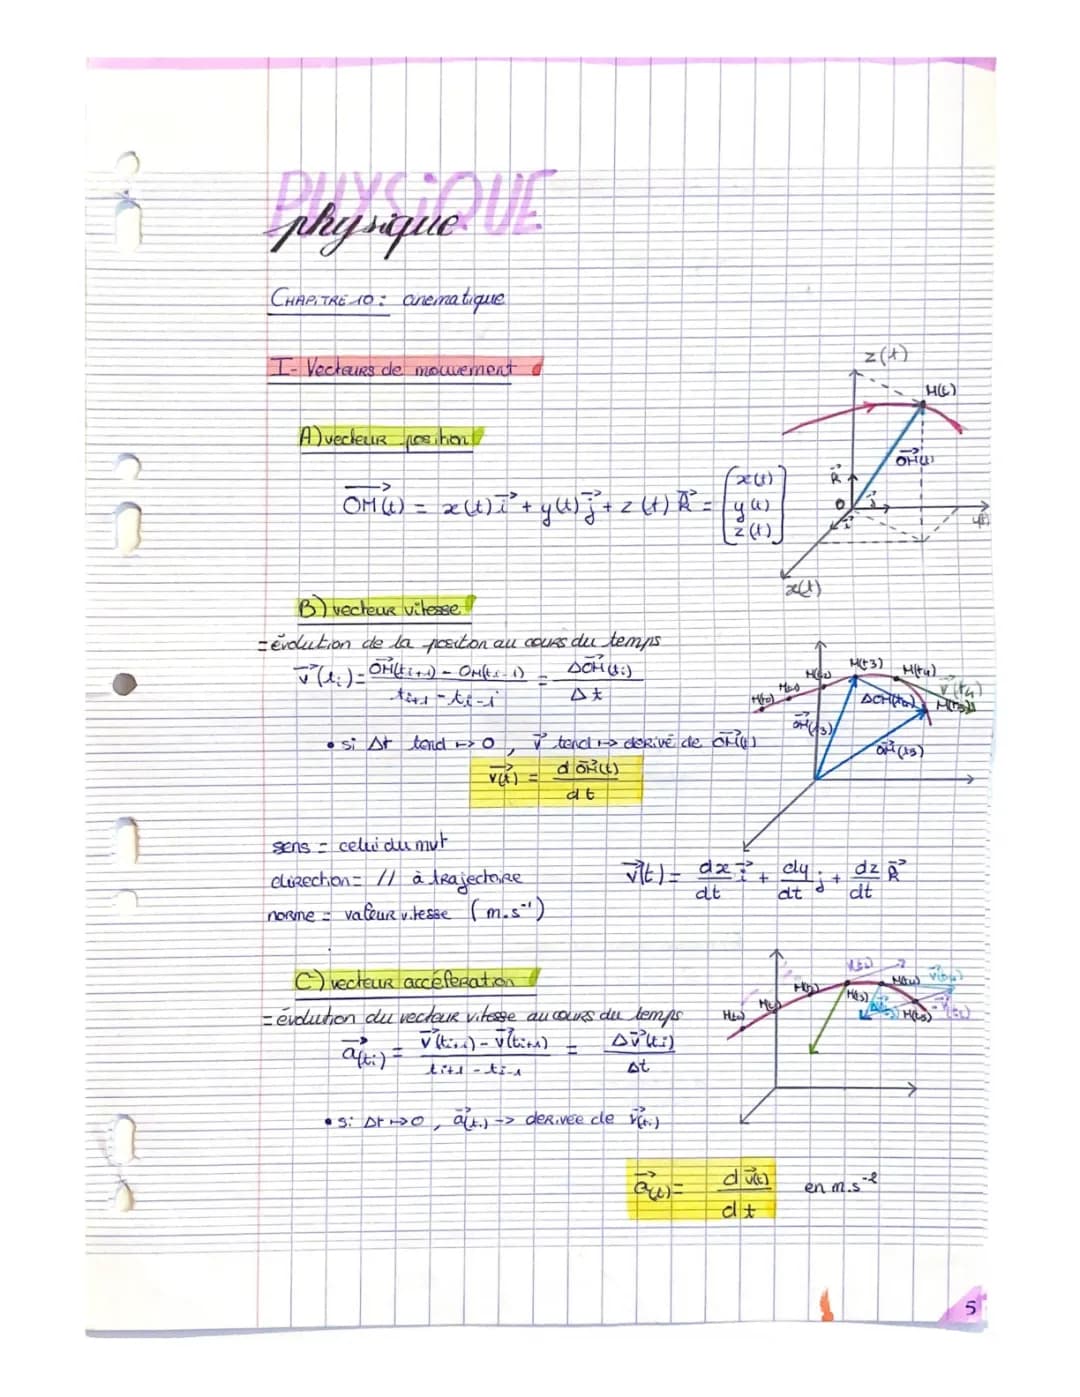 PHYSIQUE
physique
CHAPITRE 10 : cinematique
I- Vecteurs de mouvement
z(t)
M(t)
A) vecteur position
OM(t)
k
OM(t) = x(t) i + y(t) j + z(t) k = (x(t) y(t) z(t))
O
j
i
y(t)
x(t)
B) vecteur vitesse
= évolution de la positon au cours du temps
v(ti) = OM(ti+1) - OM(ti-1) / ti+1 - ti-1 = ΔOM(ti) / Δt
M(t3)
M(t4)
v(t4)
ΔOM(t4)
OM(t3)
OM(t5)
• si Δt tend ↦ 0, v tend ↦ derivé de OM(t)
v(t) = d OM(t) / dt
sens = celui du mvt
direction = // à trajectoire
norme = valeur vitesse (m.s⁻¹)
v(t) = dx/dt i + dy/dt j + dz/dt k
C) vecteur accéleration
= évolution du vecteur vitesse au cours du temps
a(ti) = v(ti+1) - v(ti+1) / ti+1 - ti-1 = Δv(ti) / Δt
M(t3)
M(t4)
M(t5)
• si Δt ↦ 0, a(t) -> derivée de v(t)
a(t) = d v(t) / dt en m.s⁻²
5